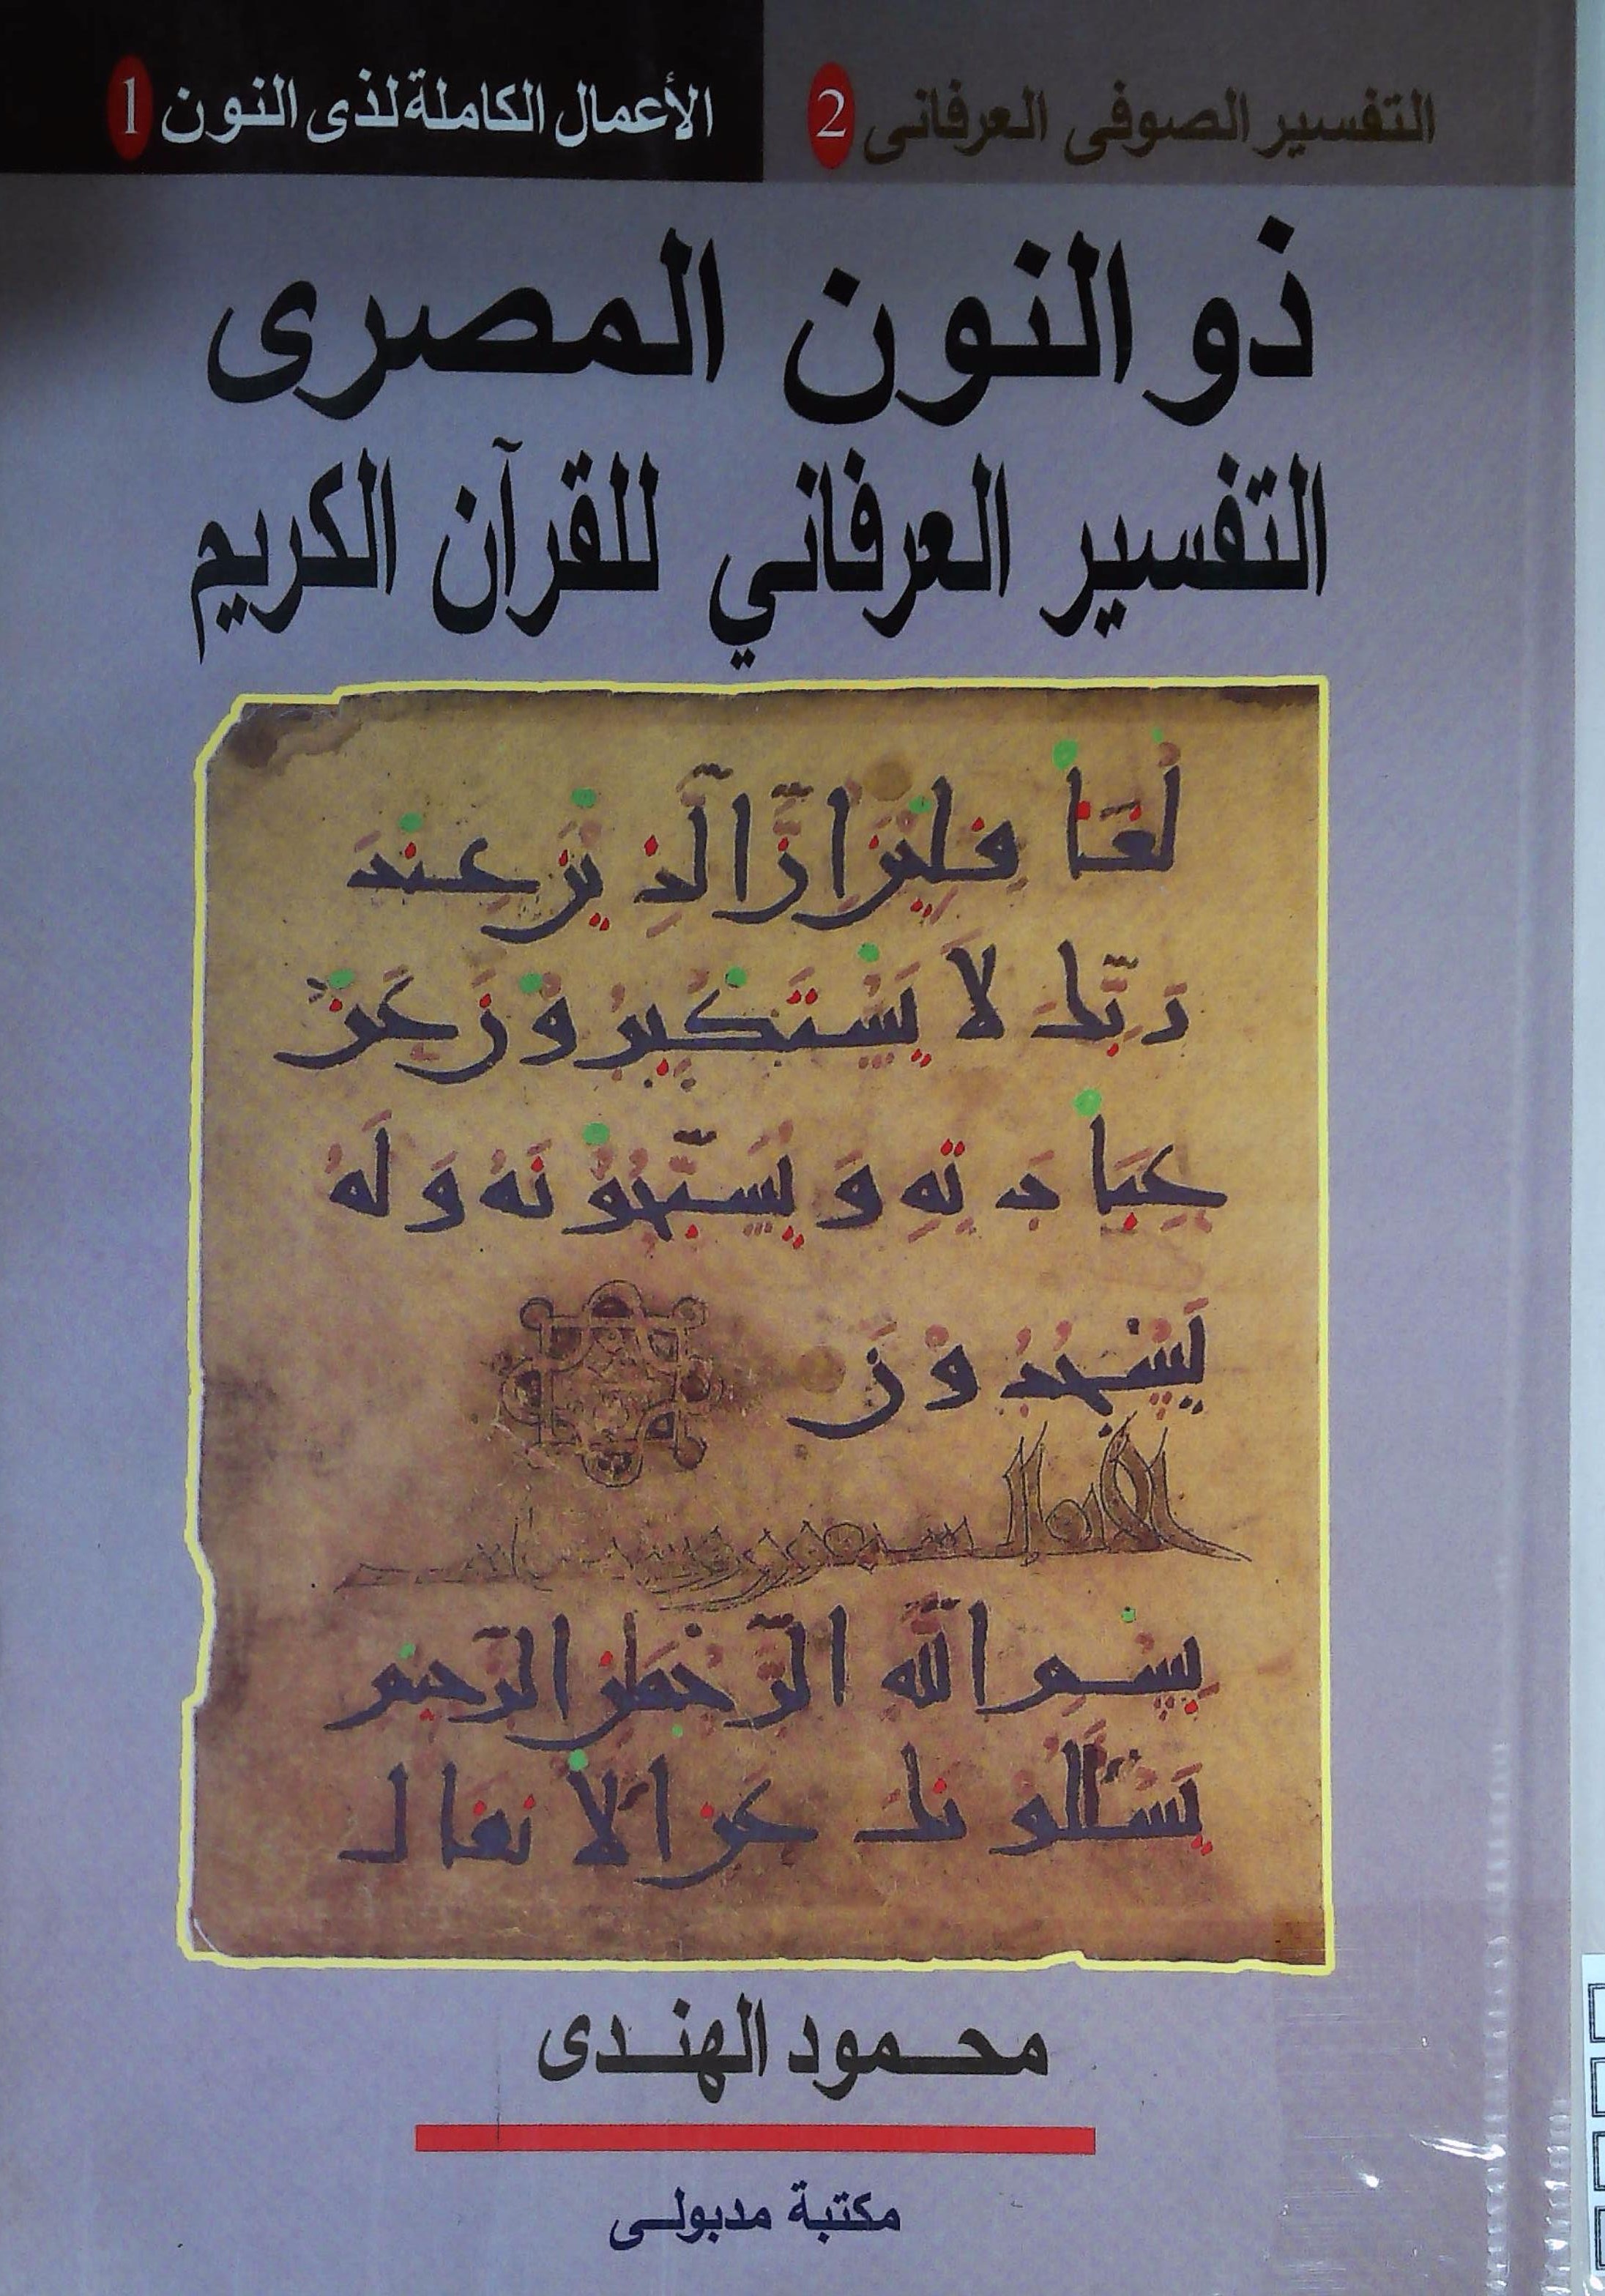 التفسير الصوفى العرفانى 2
الأعمال الكاملة لذى النون 1
ذو النون المصرى
التفسير العرفاني للقرآن الكريم
لغا فلين ان الذين عند
ربك لا يستكبرون عن
عبادته ويسبحونه وله
يسجدون
بسم الله الرحمن الرحيم
يسألونك عن الانفال
محمود الهندى
مكتبة مدبولى